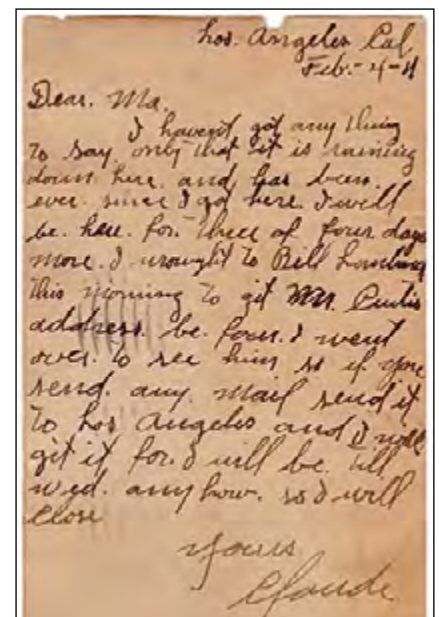 Los. Angeles Cal
Feb.-4-11
Dear. Ma.
I havent got any thing
to say only that it is raining
down here. and has been.
ever. since I got here. I will
be. here. for. three of four days
more. I wrought to Bill
this morning to git Mr. Curtis
address. be. foor. I went
over. to see him so if you
send. any. mail send it
to Los Angeles and I will
git it for. I will be. till
wed. any how. so I will
close
Yours
Claude.